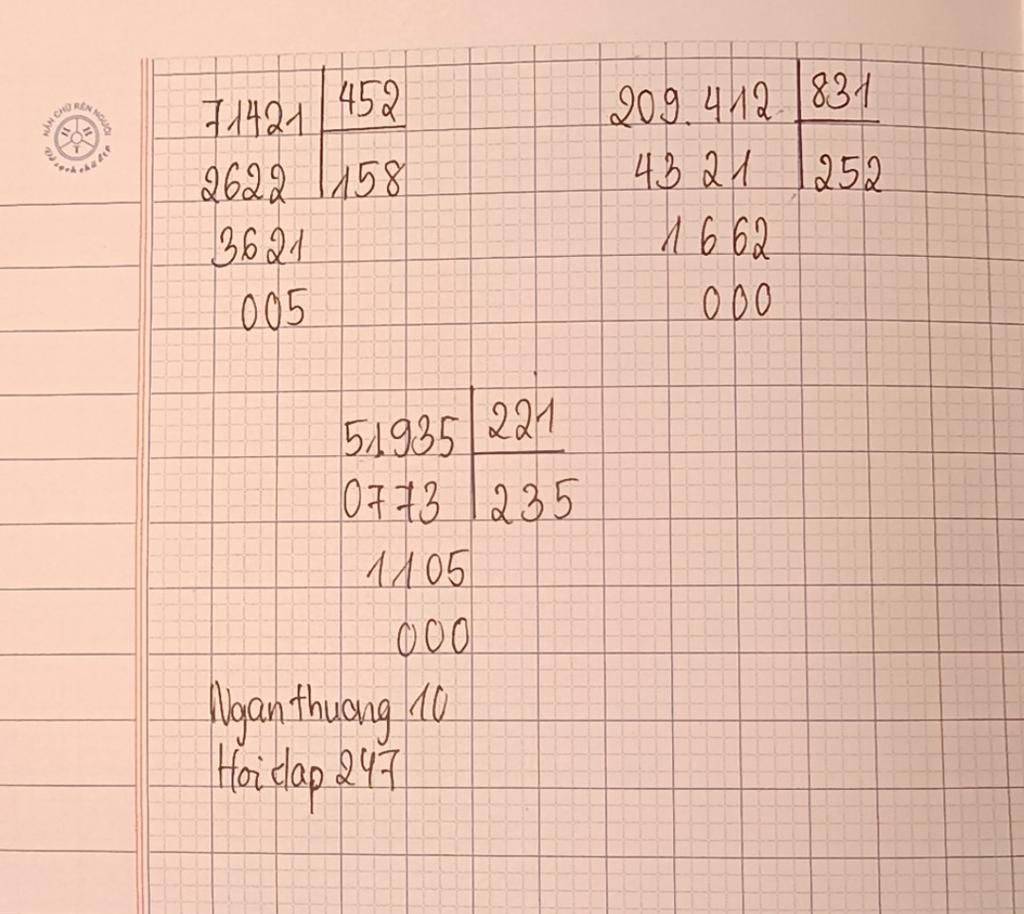 NẮN CHỮ RÈN NGƯỜI
Vở sạch chữ đẹp
71421 452
2622 158
3621
005
209.412 831
4321 252
1662
000
51935 221
0773 235
1105
000
Nganthuong 10
Hoidap 247